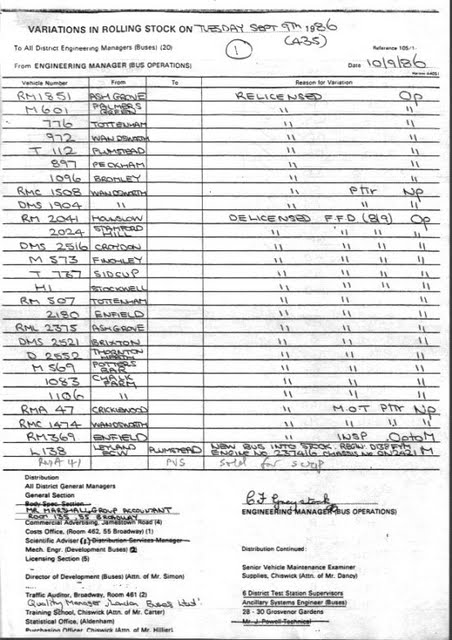 VARIATIONS IN ROLLING STOCK ON TUESDAY SEPT 9TH 1986
(A35)
To All District Engineering Managers (Buses) (20)
1
Reference 105/1-
From ENGINEERING MANAGER (BUS OPERATIONS)
Date 10/9/86
Vehicle Number From To Reason for Variation
RM1851 ASH GROVE RELICENSED Op
M601 PALMERS GREEN " "
776 TOTTENHAM " "
972 WANDSWORTH " "
T 112 PLUMSTEAD " "
897 PECKHAM " "
1096 BROMLEY " "
RMC 1508 WANDSWORTH " PTTr Np
DMS 1904 " " " "
RM 2041 HOUNSLOW DELICENSED F.F.D (8/9) Op
2024 STAMFORD HILL " " " "
DMS 2516 CROYDON " " " "
M 573 FINCHLEY " " " "
T 787 SIDCUP " " " "
H1 STOCKWELL " " " "
RM 507 TOTTENHAM " " " "
2180 ENFIELD " " " "
RML 2375 ASH GROVE " " " "
DMS 2521 BRIXTON " " " "
D 2552 THORNTON HEATH " " " "
M 569 POTTERS BAR " " " "
1083 CHALK FARM " " " "
1106 " " " " "
RMA 47 CRICKLEWOOD " M.O.T PTTr Np
RMC 1474 WANDSWORTH " " " "
RM369 ENFIELD " INSP. Op to M
L138 LEYLAND ECW PLUMSTEAD NEW BUS INTO STOCK. REGN.
ENGINE NO 237416 CHASSIS NO ON2421 M
RMA 41 PVS Sold for scrap
Distribution
All District General Managers
General Section
Body Spec. Section
MR MARSHALL GROUP ACCOUNTANT
ROOM 135, 55 BROADWAY
Commercial Advertising, Jamestown Road (4)
Costs Office, (Room 462, 55 Broadway) (1)
Scientific Adviser (1) Distribution Services Manager
Mech. Engr. (Development Buses) (2)
Licensing Section (5)
Director of Development (Buses) (Attn. of Mr. Simon)
Traffic Auditor, Broadway, Room 461 (2)
Quality Manager, London Buses Ltd
Training School, Chiswick (Attn. of Mr. Carter)
Statistical Office, (Aldenham)
Purchasing Officer, Chiswick (Attn. of Mr. Hillier)
ENGINEERING MANAGER (BUS OPERATIONS)
Distribution Continued:
Senior Vehicle Maintenance Examiner
Supplies, Chiswick (Attn. of Mr. Dancy)
6 District Test Station Supervisors
Ancillary Systems Engineer (Buses)
28 - 30 Grosvenor Gardens
Mr. J Powell Technical